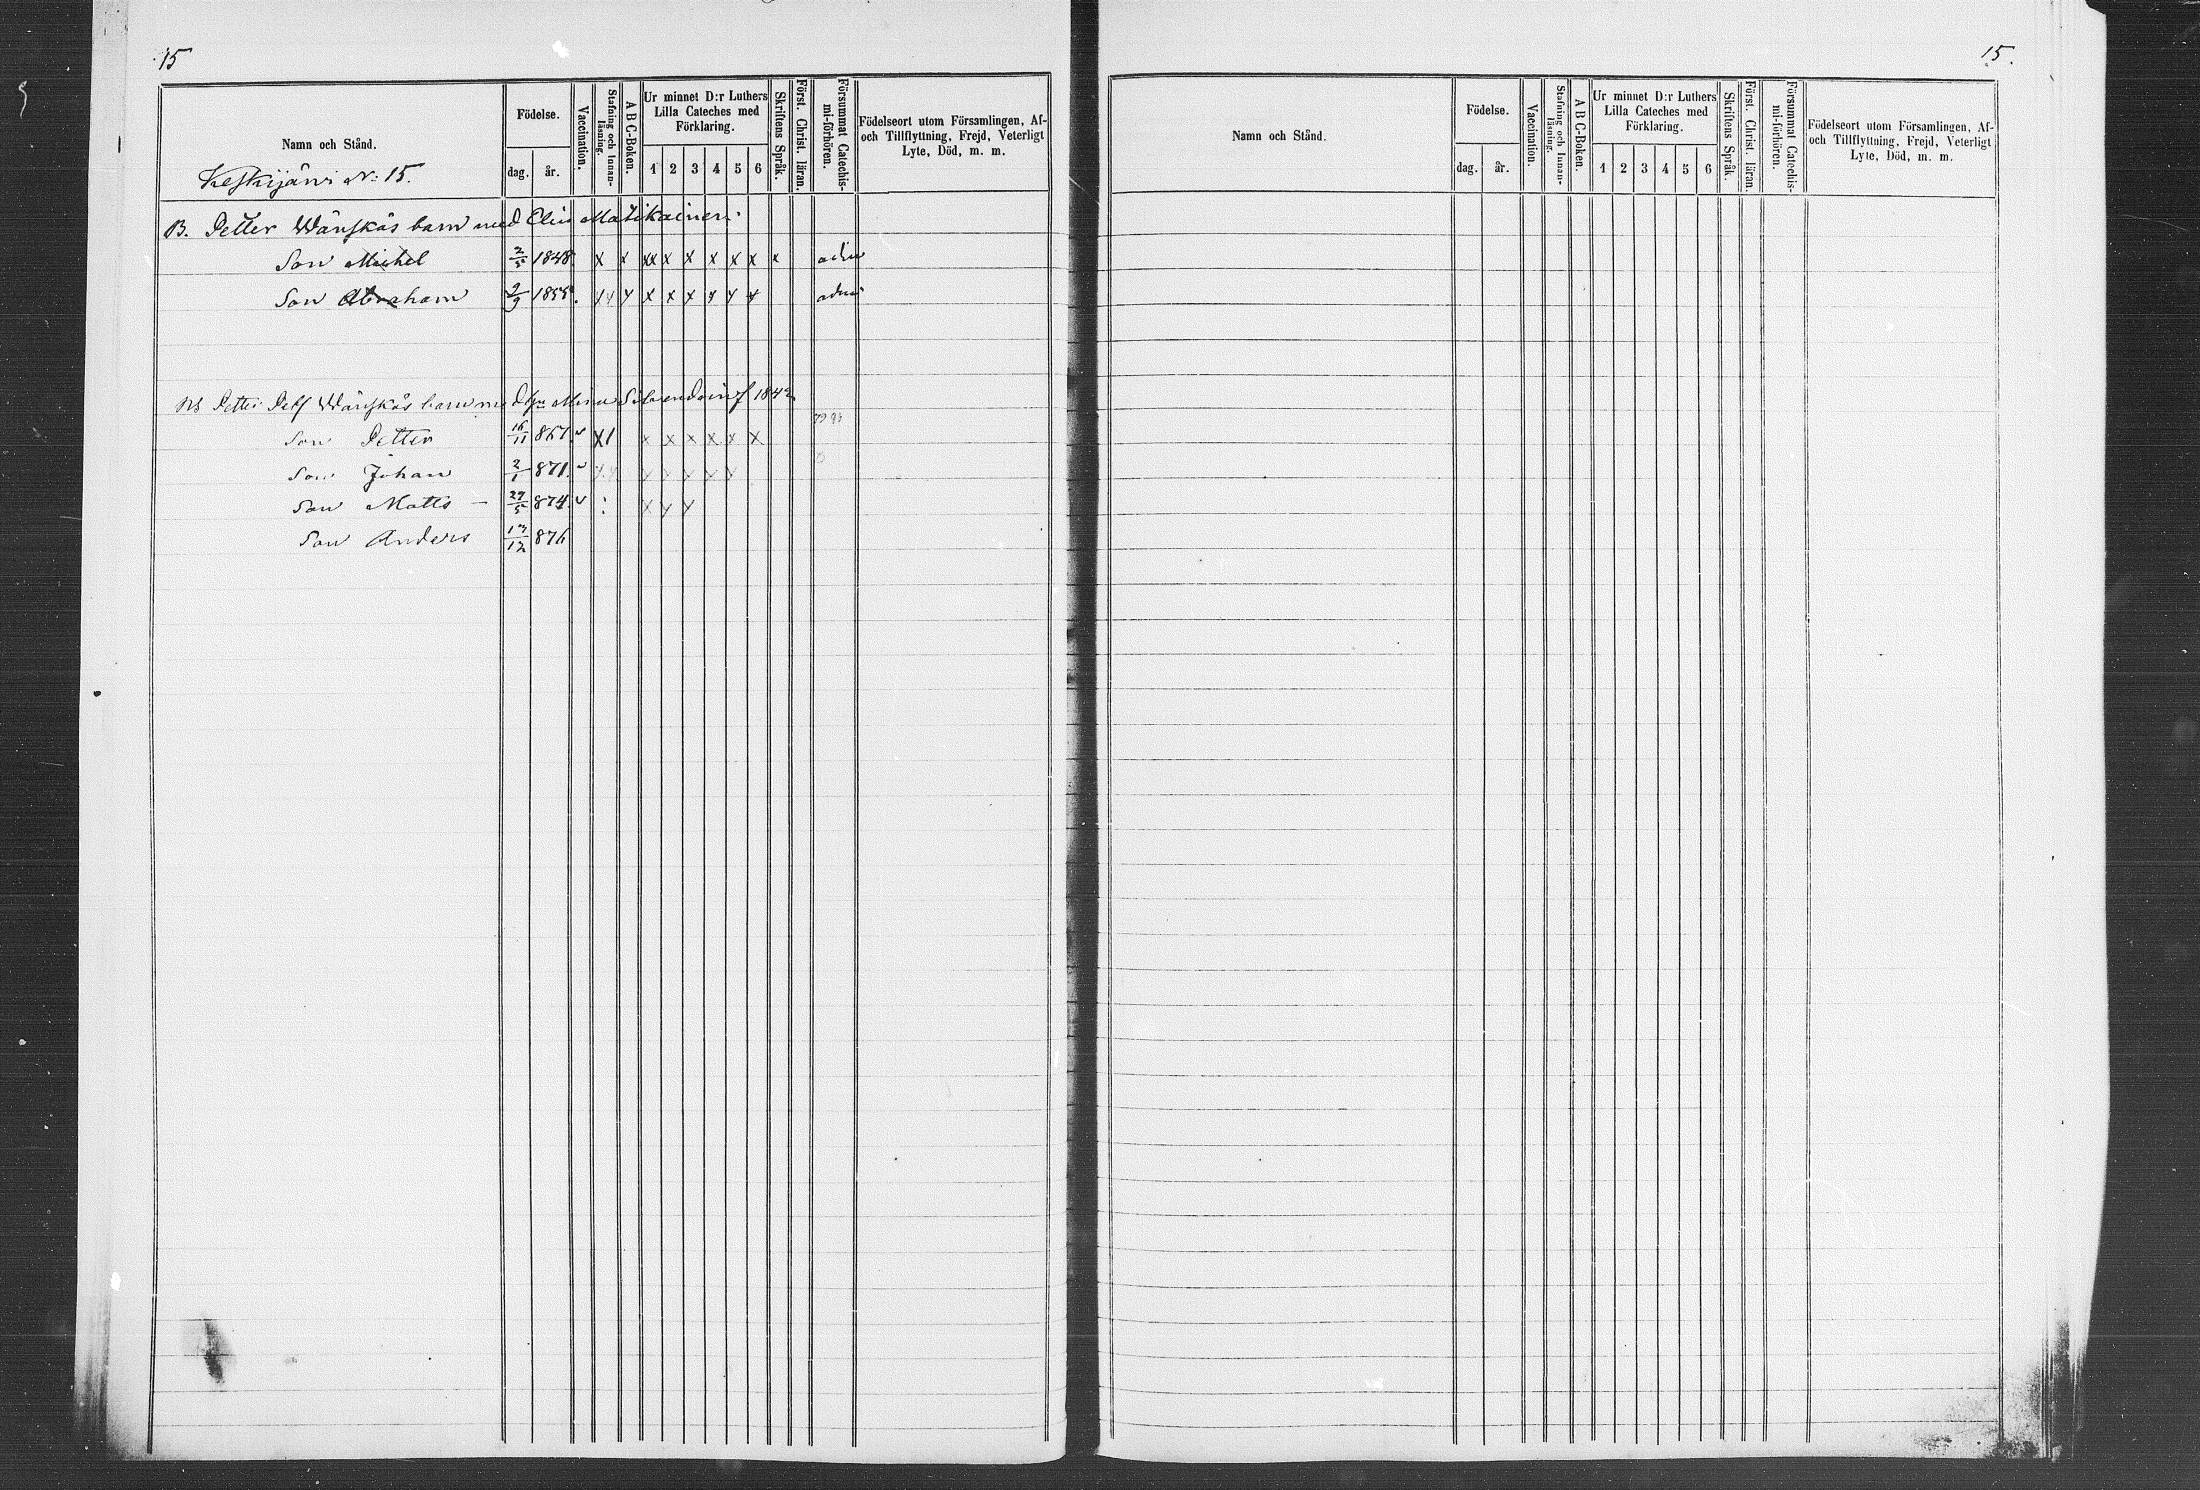 15
Namn och Stånd.
Födelse.
dag. år.
Vaccination.
Stafning och Innan-läsning.
A B C-Boken.
Ur minnet D:r Luthers
Lilla Cateches med
Förklaring.
1 2 3 4 5 6
Skriftens Språk.
Först. Christ. läran.
Försummat Catechis-mi-förhören.
Födelseort utom Församlingen, Af-
och Tillflyttning, Frejd, Veterligt
Lyte, Död, m. m.
Keskijärvi No 15.
B. Petter Wänskäs barn med Elin Matikainen:
Son Michel 2/5 1848 x x xx x x x x x x
Son Abraham 2/9 1855. x x x x x x x x
Petter Wänskäs barn med Silvendoin f 1842
Son Petter 16/11 867. x x x x x x
Son Johan 2/1 871.
Son Matts — 29/5 874. x y y
Son Anders 13/12 876
15.
Namn och Stånd.
Födelse.
dag. år.
Vaccination.
Stafning och Innan-läsning.
A B C-Boken.
Ur minnet D:r Luthers
Lilla Cateches med
Förklaring.
1 2 3 4 5 6
Skriftens Språk.
Först. Christ. läran.
Försummat Catechis-mi-förhören.
Födelseort utom Församlingen, Af-
och Tillflyttning, Frejd, Veterligt
Lyte, Död, m. m.